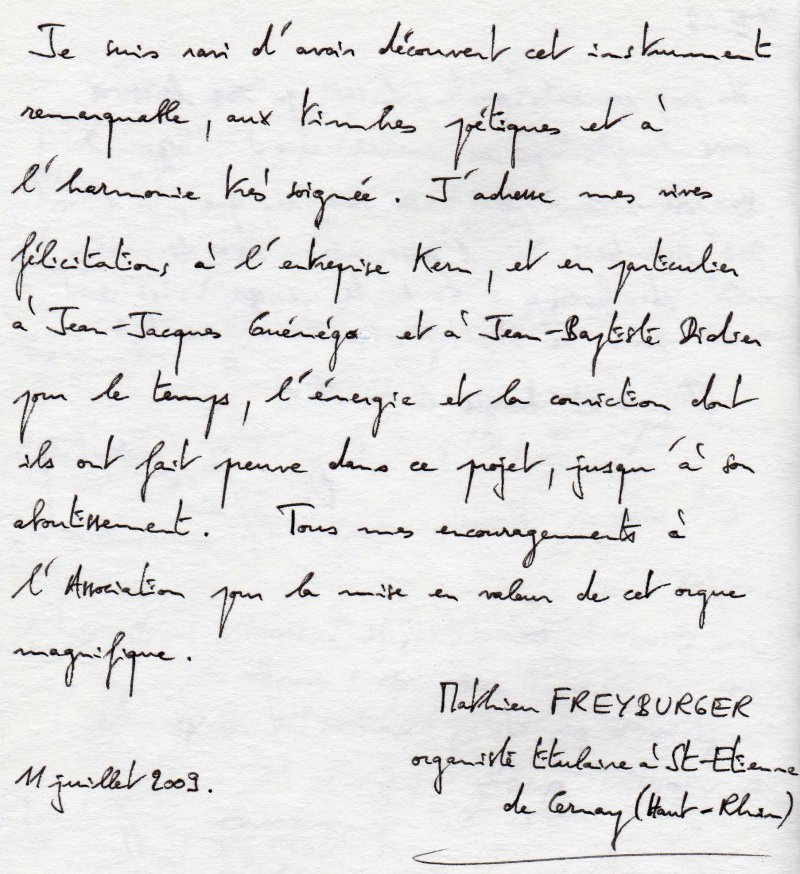 Je suis ravi d'avoir découvert cet instrument
remarquable, aux timbres poétiques et à
l'harmonie très soignée. J'adresse mes vives
félicitations à l'entreprise Kern, et en particulier
à Jean-Jacques Guénégo et à Jean-Baptiste Didier
pour le temps, l'énergie et la conviction dont
ils ont fait preuve dans ce projet, jusqu'à son
aboutissement. Tous mes encouragements à
l'Association pour la mise en valeur de cet orgue
magnifique.
Mathieu FREYBURGER
organiste titulaire à St-Etienne
de Cernay (Haut-Rhin)
11 juillet 2009.